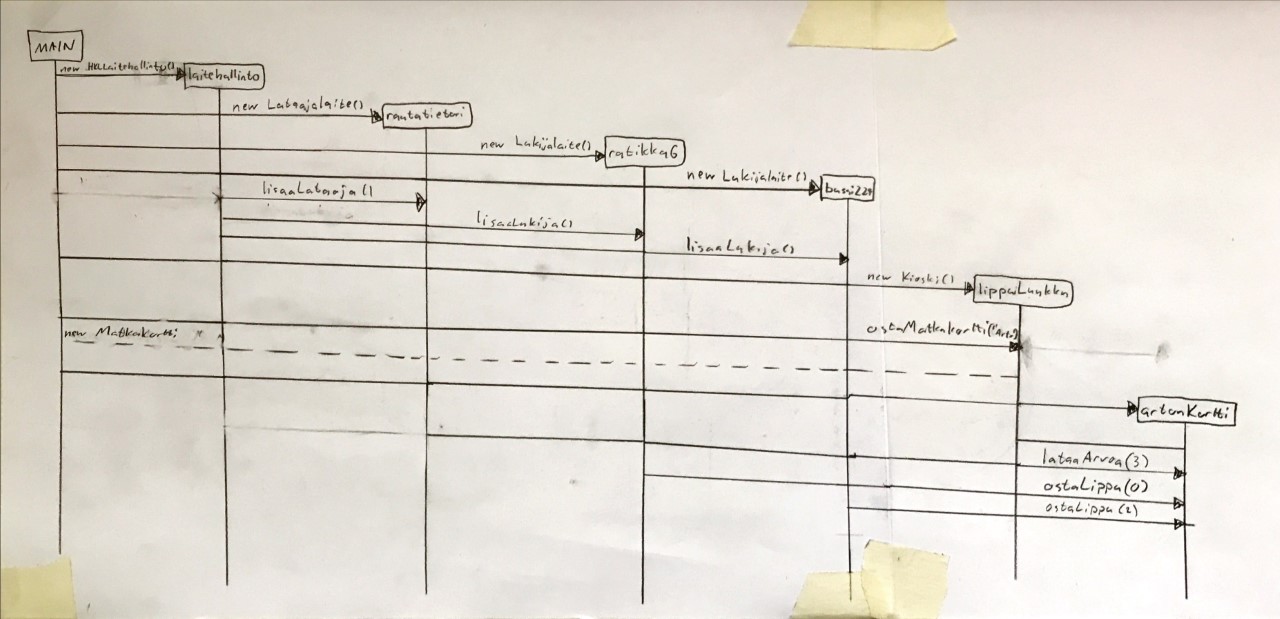 MAIN
new HKLLaitehallinto()
laitehallinto
new Lataajalaite()
rautatietori
new Lukijalaite()
ratikka6
new Lukijalaite()
bussi224
lisaaLataaja()
lisaaLukija()
lisaaLukija()
new Kioski()
lippuLuukku
new Matkakortti
ostaMatkakortti("Arto")
artonKortti
lataaArvoa(3)
ostaLippu(0)
ostaLippu(2)